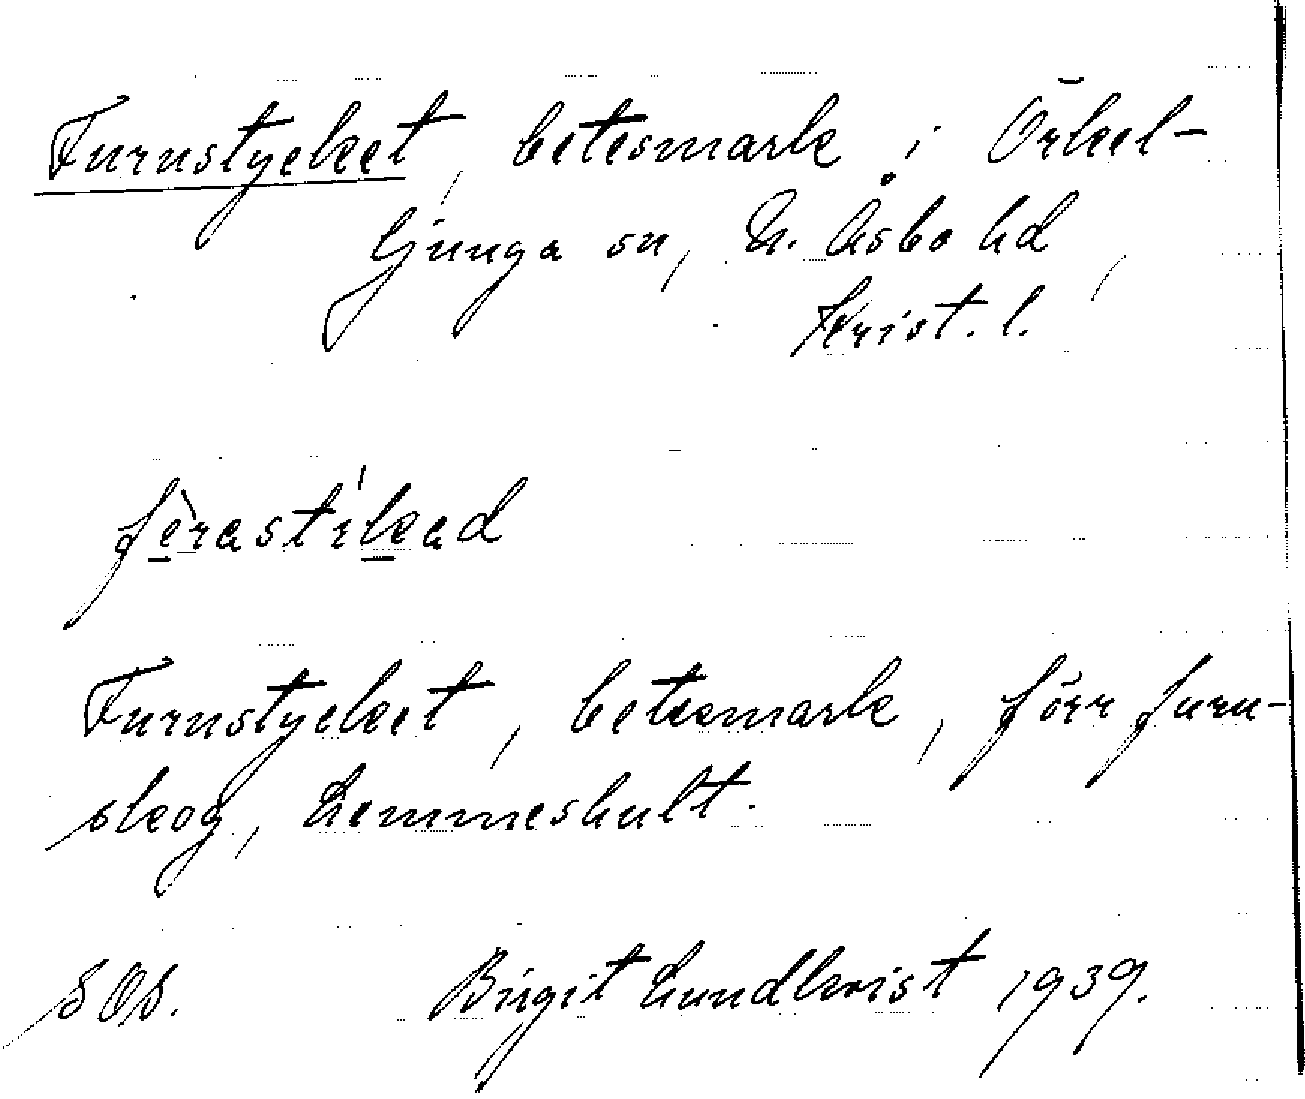 Furustycket, betesmark i Örkel-
ljunga sn, N. Åsbo hd,
Krist. l.
fèrastí̵kad
Furustycket, betesmark, förr furu-
skog, Lemmeshult.
SOS. Birgit Lundkvist 1939.